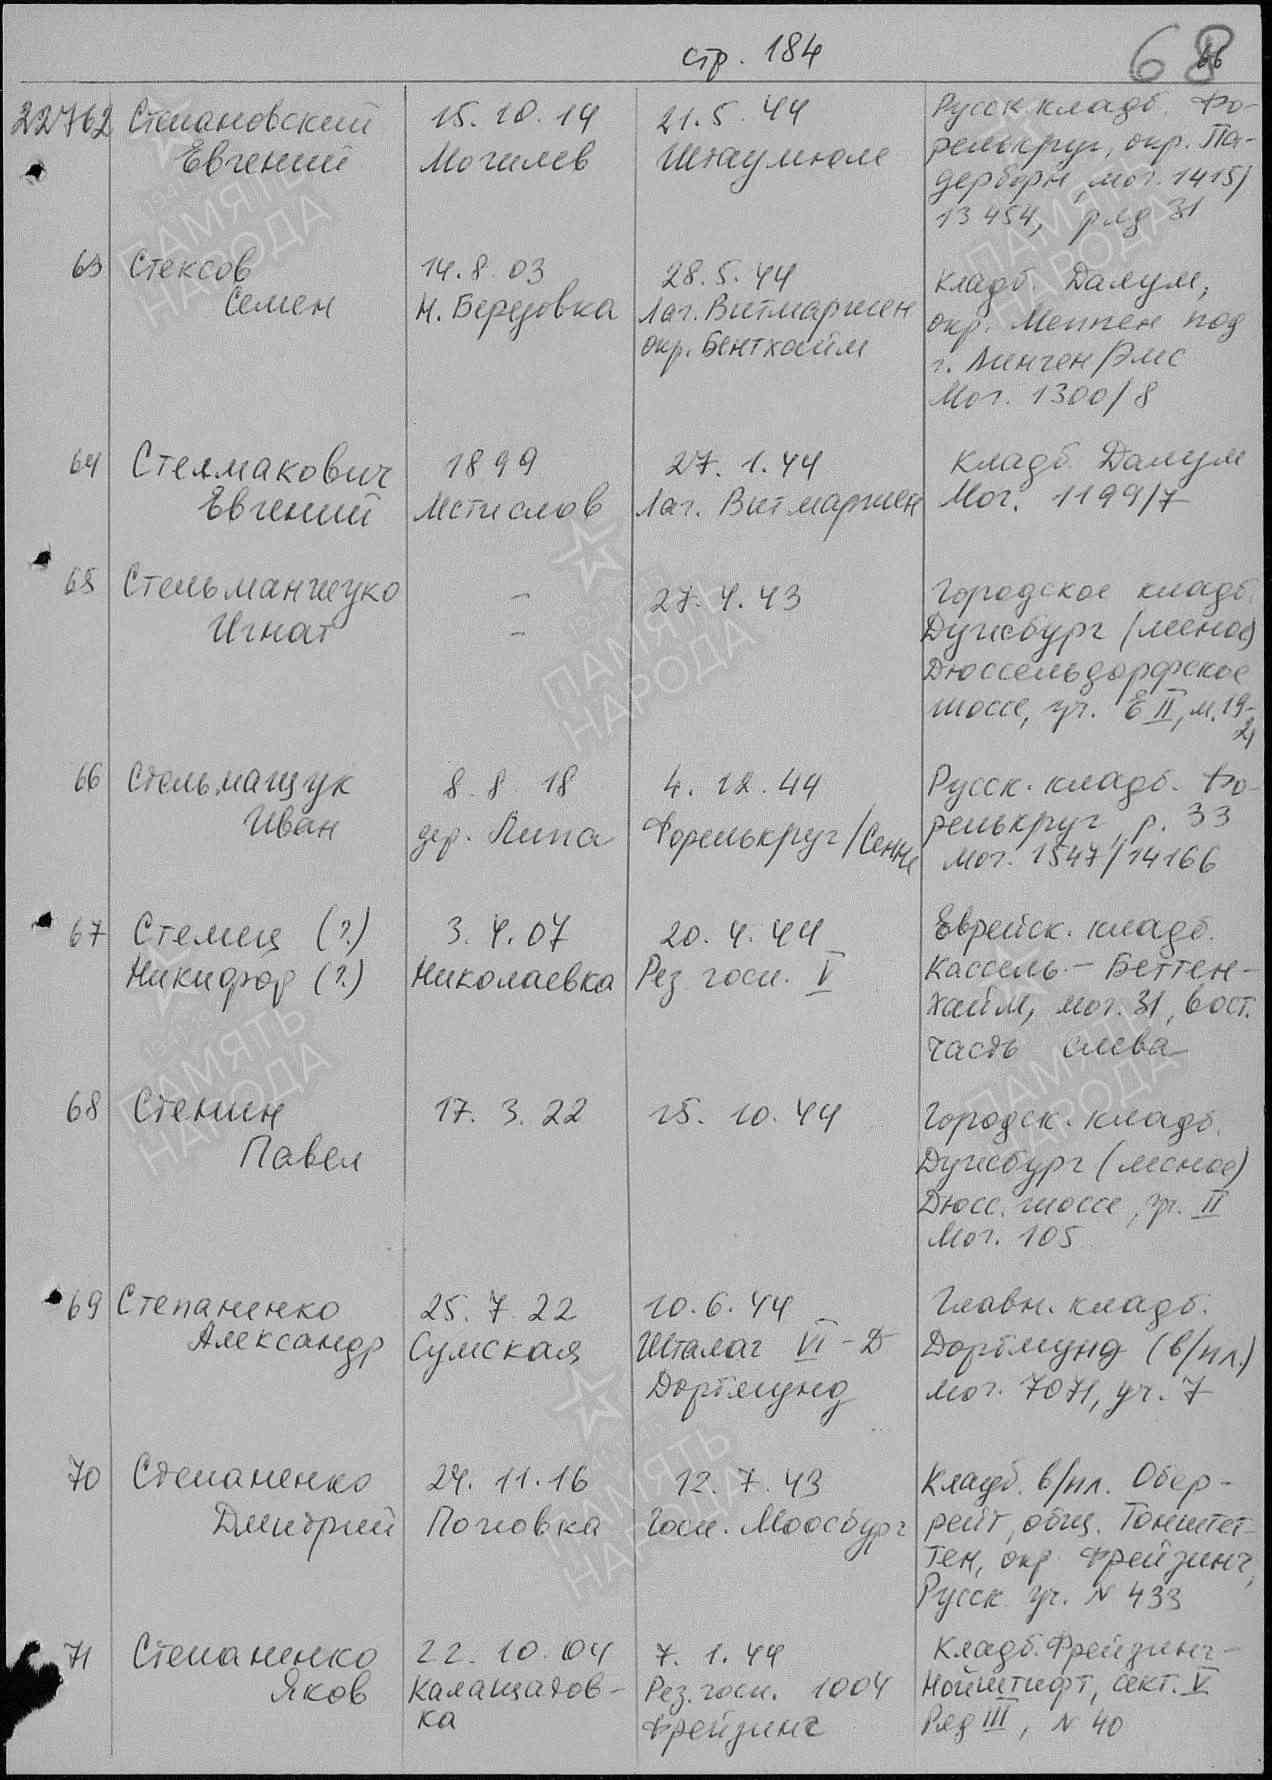 стр. 184
68
66
22762 Степановский
Евгений
15. 10. 19
Могилев
21. 5. 44
Штаумюле
Русск. кладб. Фо-
релькруг, окр. Па-
дерборн, мог. 1415/
13454, ряд 31
63 Стексов
Семен
14. 8. 03
Н. Березовка
28. 5. 44
Лаг. Витмаршен
окр. Бентхайм
Кладб. Далум,
окр. Меппен под
г. Линген/Эмс
Мог. 1300/8
64 Стелмакович
Евгений
1899
Мстислов
27. 1. 44
Лаг. Витмаршен
Кладб. Далум
Мог. 1199/7
65 Стельманчуко
Игнат
-
-
27. 4. 43
Городское кладб.
Дуисбург (лесное)
Дюссельдорфское
шоссе, уч. E II, м. 19-
66 Стельмащук
Иван
8. 8. 18
дер. Липа
4. 12. 44
Форелькруг/Сенне
Русск. кладб. Фо-
релькруг, р. 33
мог. 1547/14166
67 Стемец (?)
Никифор (?)
3. 4. 07
Николаевка
20. 4. 44
Рез. госп. V
Еврейск. кладб.
Кассель - Беттен-
хайм, мог. 31, вост.
часть слева
68 Стенин
Павел
17. 3. 22
15. 10. 44
Городск. кладб.
Дуисбург (лесное)
Дюсс. шоссе, уч. II
Мог. 105
69 Степаненко
Александр
25. 7. 22
Сумская
10. 6. 44
Шталаг VI - Д
Дортмунд
Главн. кладб.
Дортмунд (в/пл.)
мог. 7071, уч. 7
70 Степаненко
Дмитрий
24. 11. 16
Поповка
12. 7. 43
Госп. Моосбург
Кладб. в/пл. Обер-
рейт, общ. Тонштет-
тен, окр. Фрейзинг,
Русск. уч. N 433
71 Степаненко
Яков
22. 10. 04
Калащатов-
ка
7. 1. 44
Рез. госп. 1004
Фрейзинг
Кладб. Фрейзинг-
Нойштифт, сект. V
Ряд III, N 40
ПАМЯТЬ
НАРОДА
ПАМЯТЬ
НАРОДА
ПАМЯТЬ
НАРОДА
ПАМЯТЬ
НАРОДА
ПАМЯТЬ
НАРОДА
ПАМЯТЬ
НАРОДА